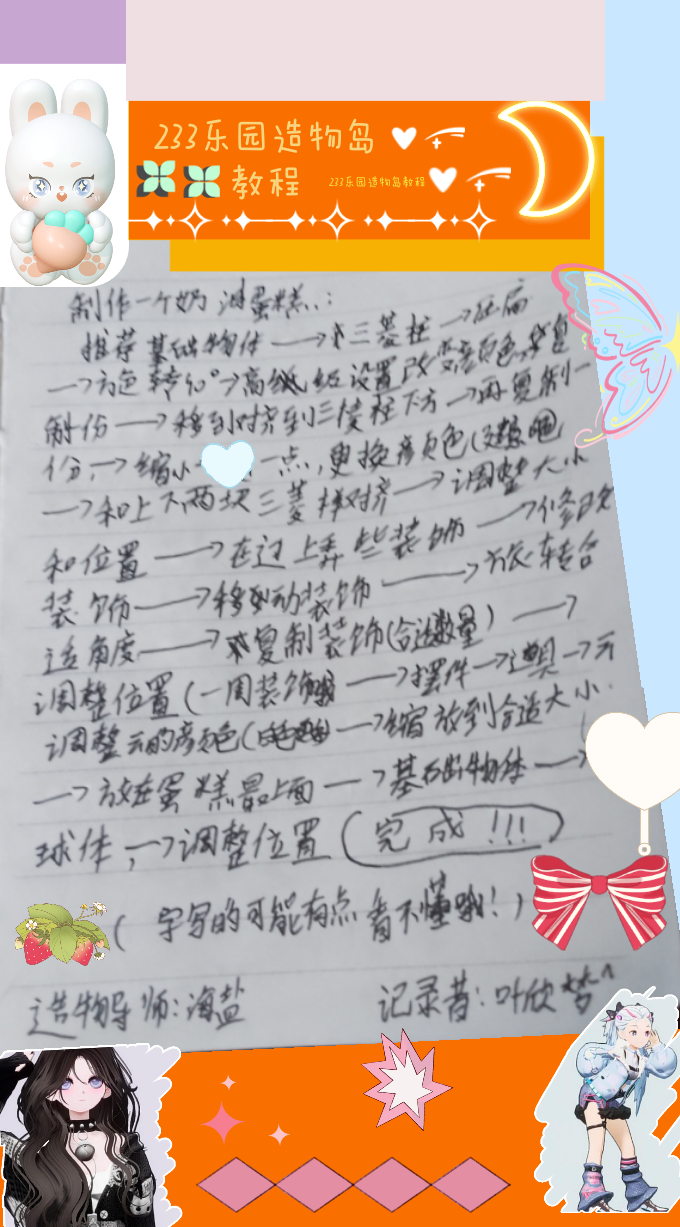 233乐园造物岛
教程 233乐园造物岛教程
制作一个奶油蛋糕..:
推荐基础物体→三菱柱→压扁
→方色转90°→高级设置改变颜色→复
制份→移到挤到三棱柱下方→再复制一
份,→缩小一点,更换颜色(
→和上下两块三菱样对挤→调整大小
和位置→在边上弄些装饰→修改
装饰→移动装饰→旋转合
适角度→复制装饰(合适数量)→
调整位置(一周装饰→摆件→道具→云
调整云的颜色(白色→缩放到合适大小.
→放在蛋糕最上面→基础物体→
球体,→调整位置(完成!!!)
(字写的可能有点看不懂哦!)
造物导师:海盐 记录者:叶欣梦